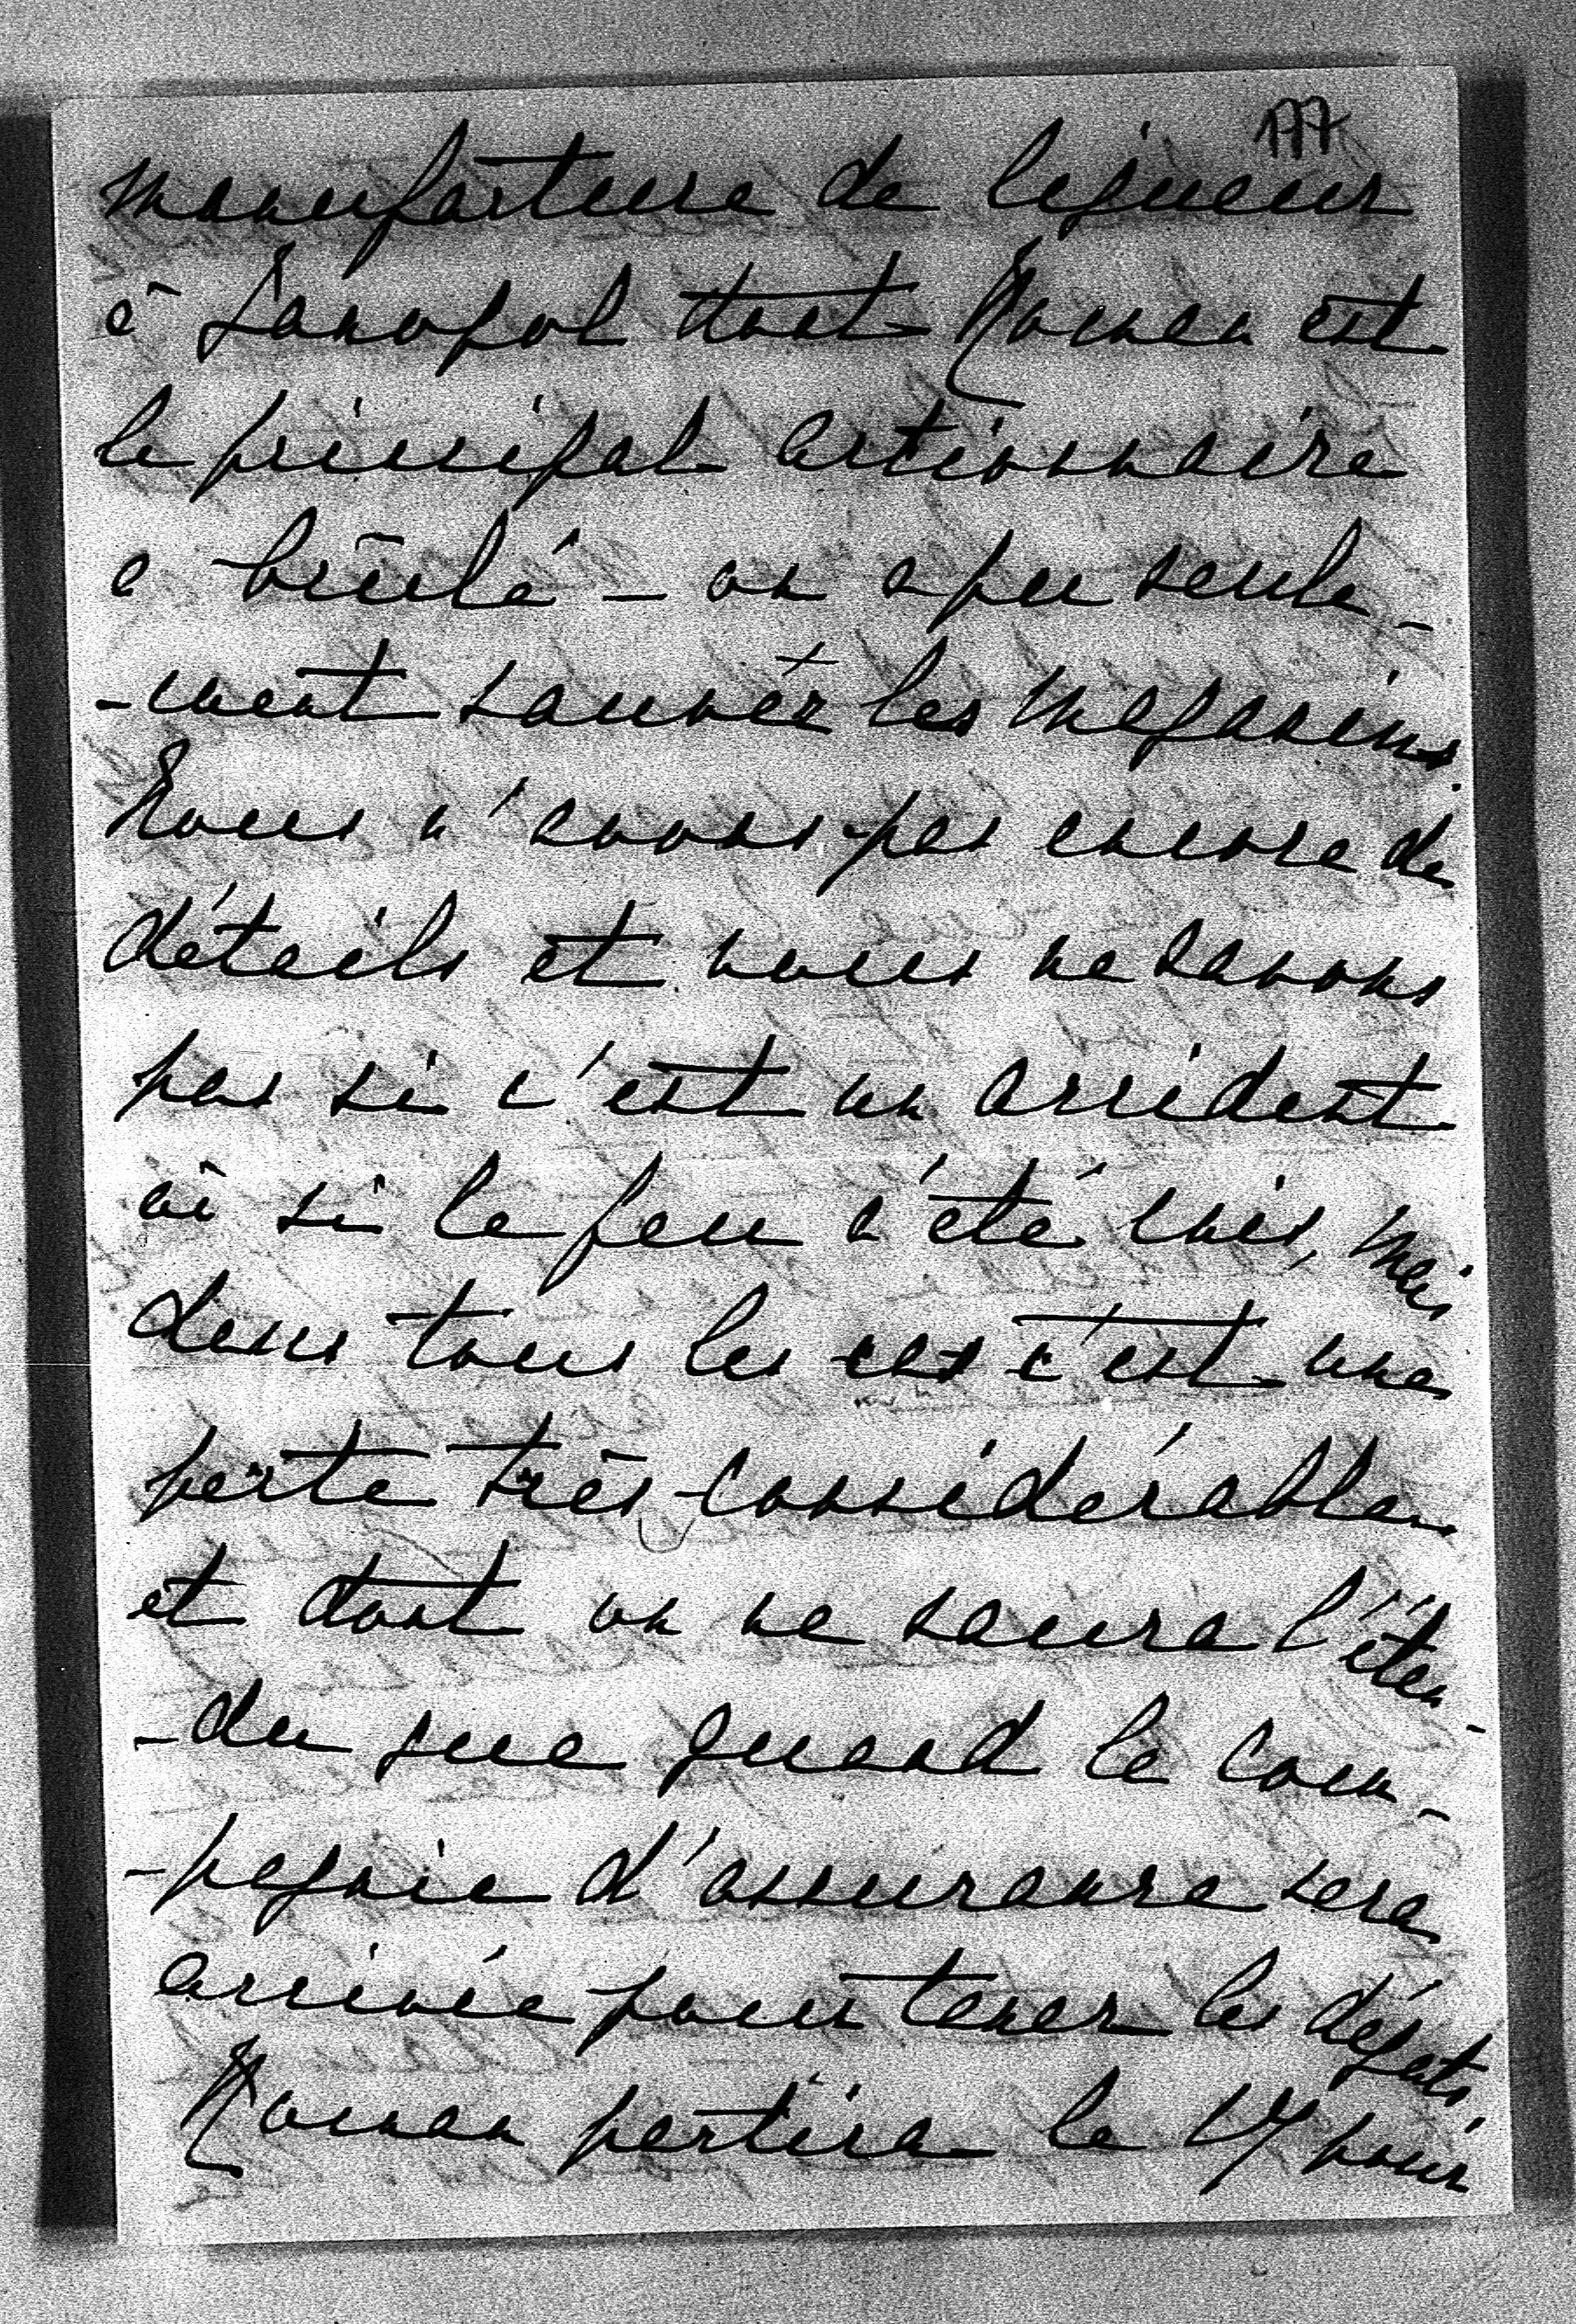 177
manufacture de liqueur
à Janopol dont Roman est
le principal actionnaire
a brûlé – on a pu seule-
-ment sauver les magasins.
Nous n'avons pas encore de
détails et nous ne savons
pas si c'est un accident
où si le feu a été mis, mais
dans tous les cas c'est une
perte très considérable
et dont on ne saura l'éten-
-du que quand le com-
-pagnie d'assurance sera
arrivée pour taxer les dégats
Roman partira le 17 pour